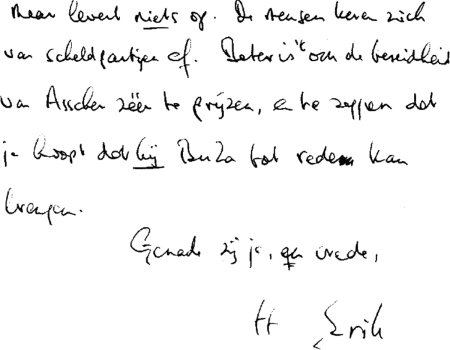 maar levert niets op. De mensen keren zich
van scheldpartijen af. Beter is 't om de bereidheid
van Asscher zéér te prijzen, en te zeggen dat
je hoopt dat hij BuZa tot rede kan
brengen.
Genade zij je, en vrede,
H Erik